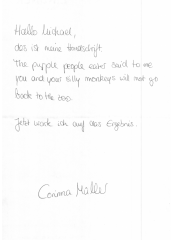 Hallo Michael,
das ist meine Handschrift
The purple people eater said to me
you and your silly monkeys will not go
back to the zoo.
Jetzt warte ich auf das Ergebnis.
Corinna Müller